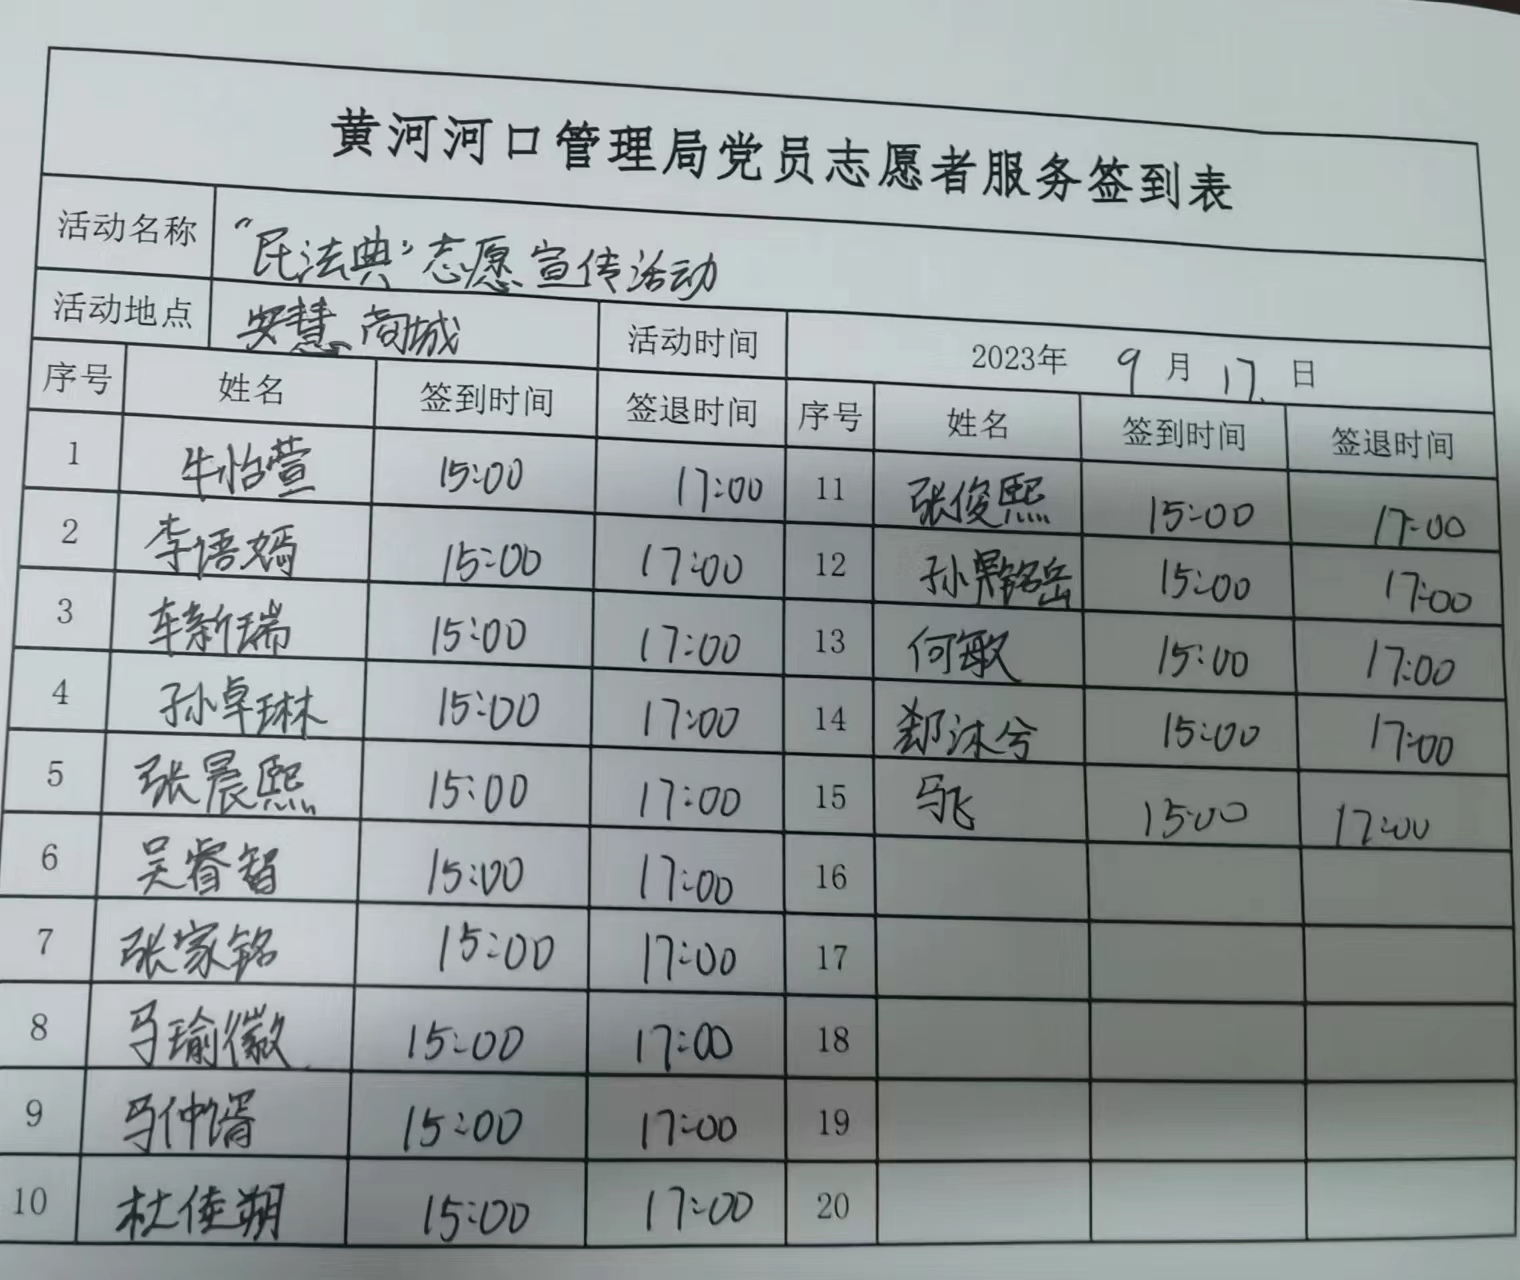 黄河河口管理局党员志愿者服务签到表
活动名称 “民法典”志愿宣传活动
活动地点 安慧商城 活动时间 2023年 9 月 17 日
序号 姓名 签到时间 签退时间 序号 姓名 签到时间 签退时间
1 牛怡萱 15:00 17:00 11 张俊熙 15:00 17:00
2 李语嫣 15:00 17:00 12 孙鼎铭岳 15:00 17:00
3 车新瑞 15:00 17:00 13 何敏 15:00 17:00
4 孙卓琳 15:00 17:00 14 郑沐兮 15:00 17:00
5 张晨熙 15:00 17:00 15 马飞 15:00 17:00
6 吴睿智 15:00 17:00 16
7 张家铭 15:00 17:00 17
8 马瑜徽 15:00 17:00 18
9 马仲谞 15:00 17:00 19
10 杜佳朔 15:00 17:00 20